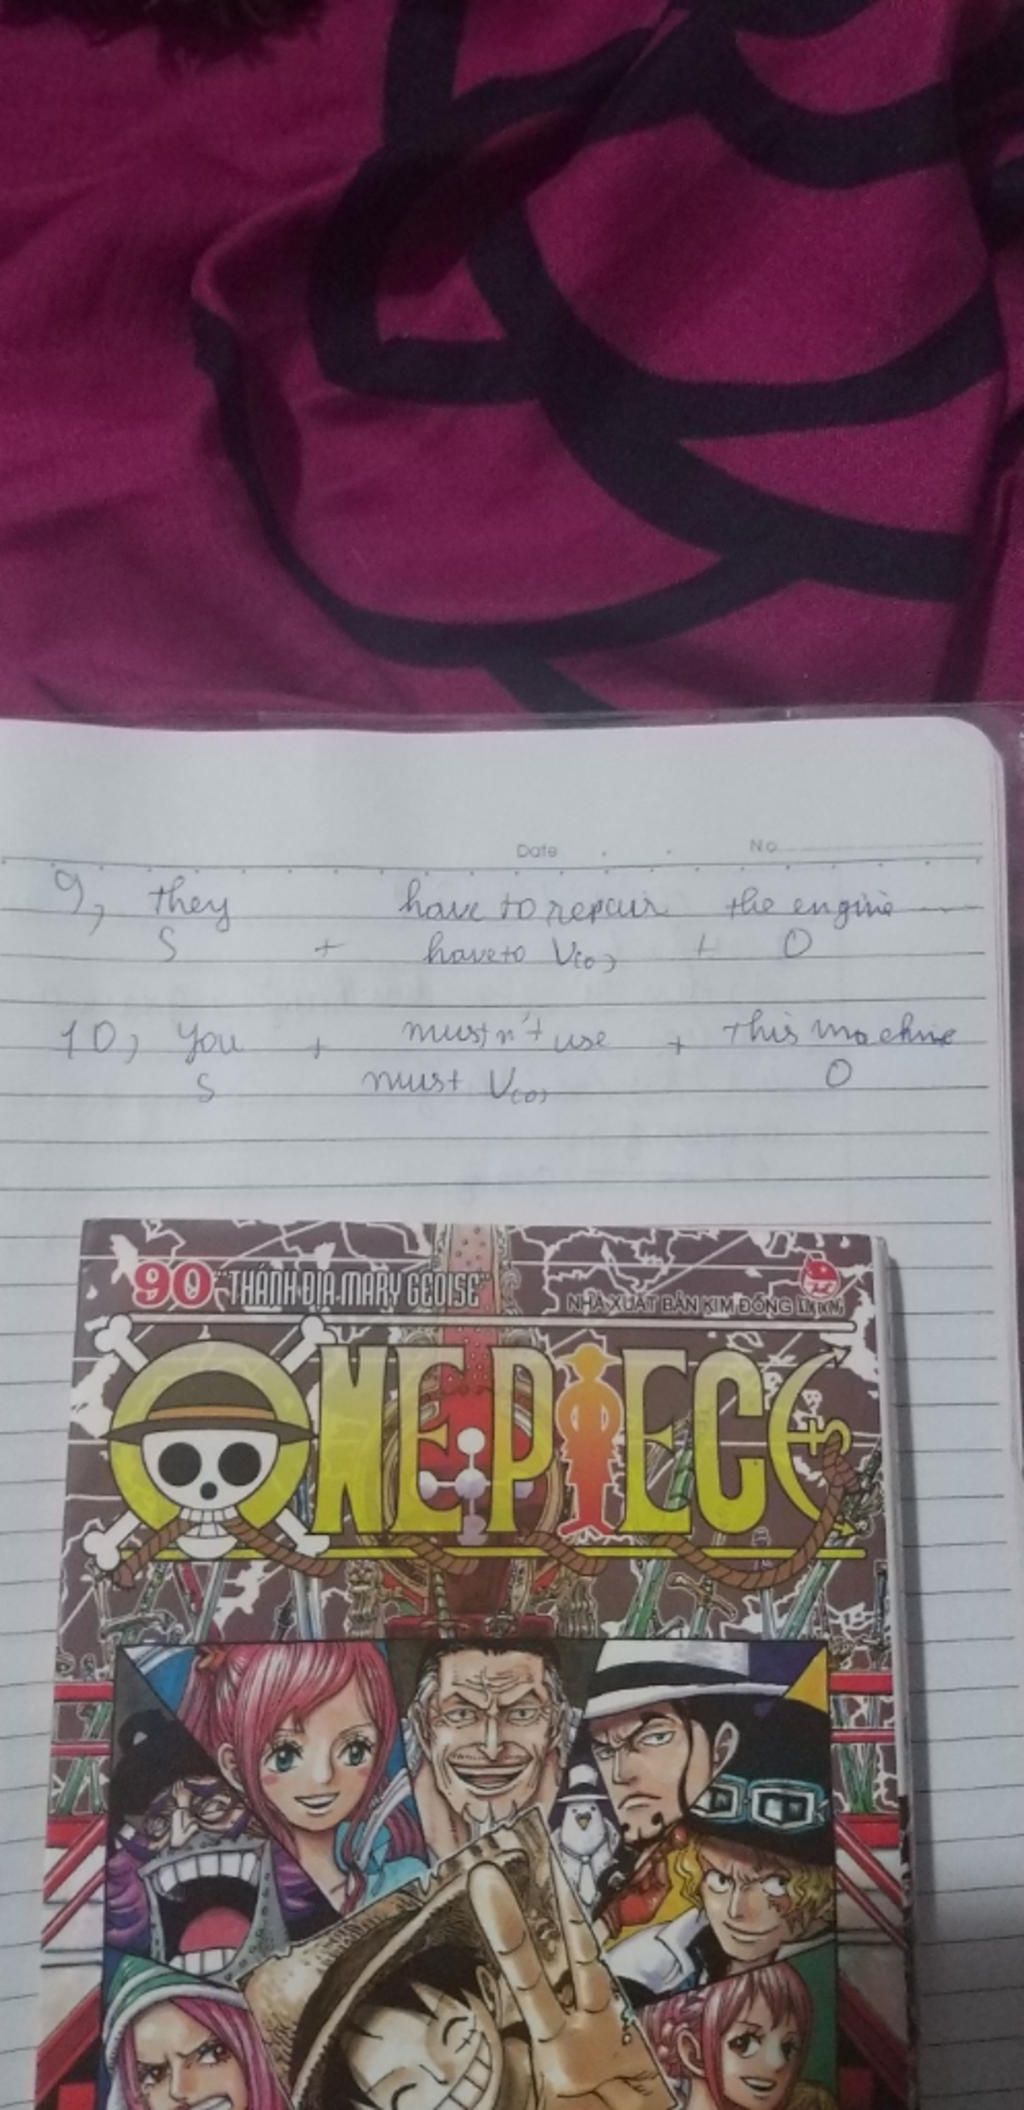 Date No
9, they have to repair the engine
S + have to V(o) + O
10, you + mustn't use + this machine
S must V(o) O
90 "THÁNH ĐỊA MARY GEOISE" NHÀ XUẤT BẢN KIM ĐỒNG KIM ĐỒNG
ONE PIECE